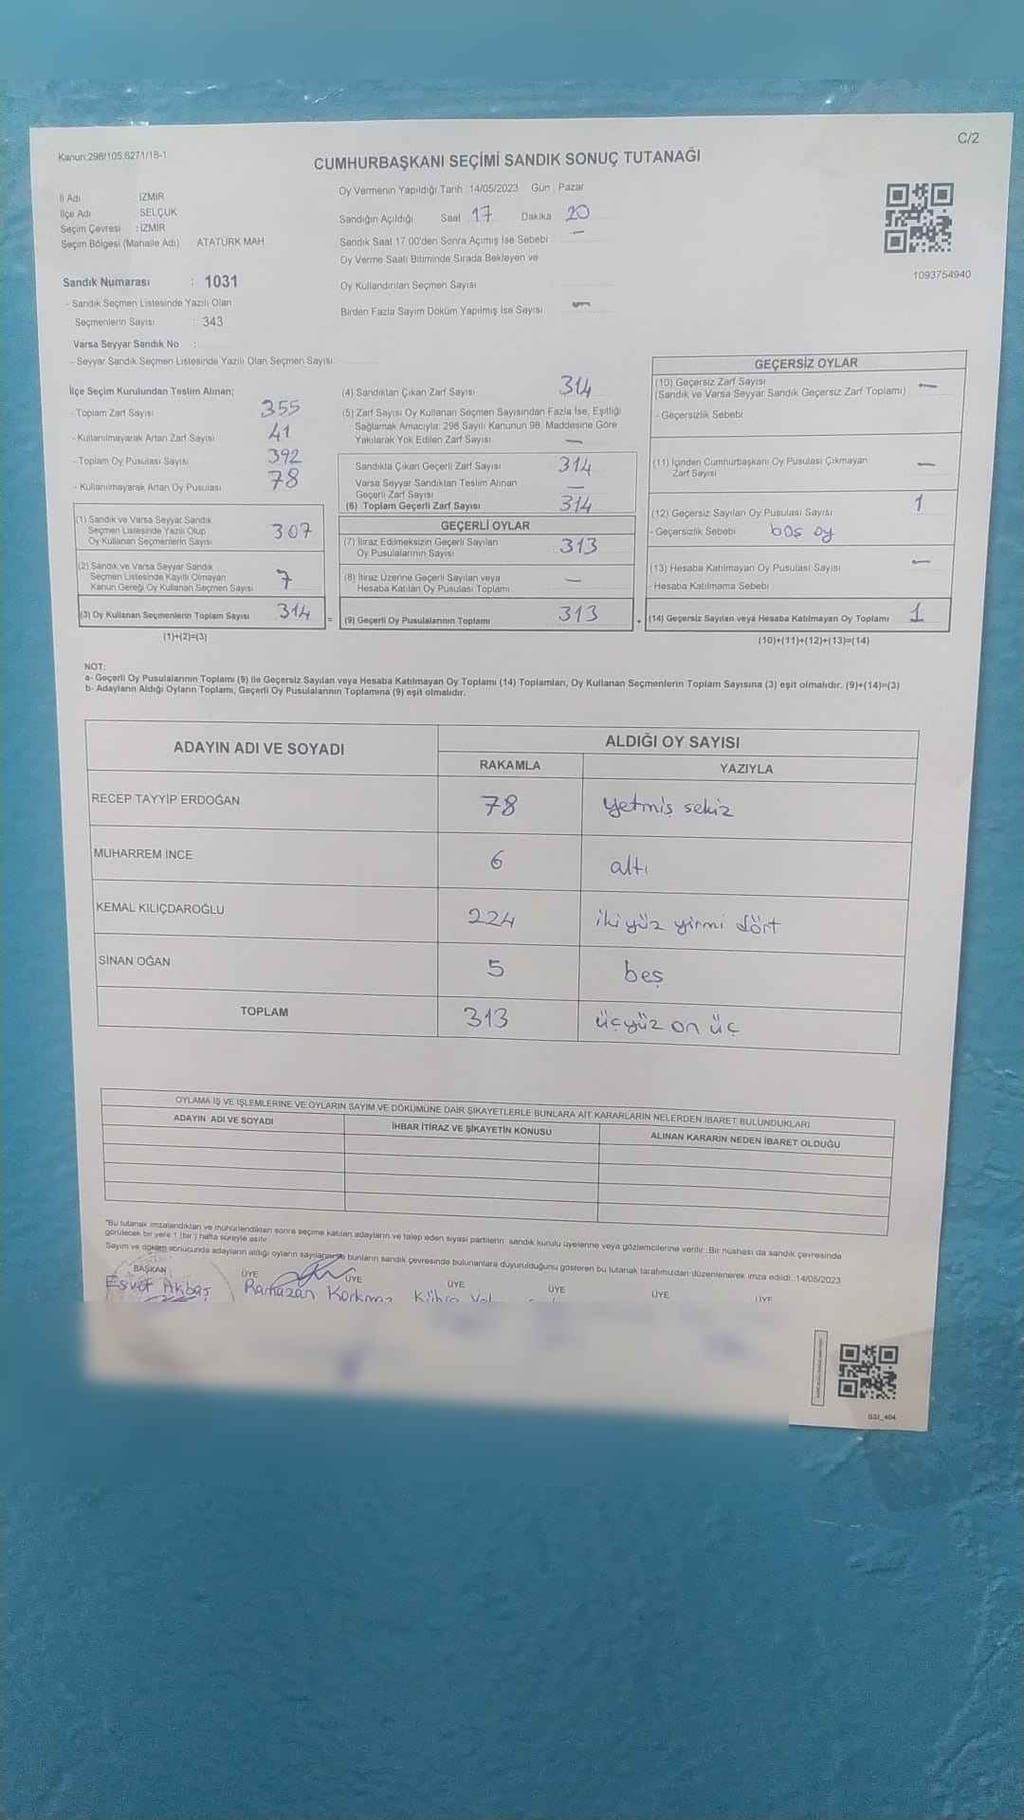 Kanun:298/105 6271/18-1
C/2
CUMHURBAŞKANI SEÇİMİ SANDIK SONUÇ TUTANAĞI
İl Adı İZMİR
İlçe Adı SELÇUK
Seçim Çevresi : İZMİR
Seçim Bölgesi (Mahalle Adı) ATATÜRK MAH
Oy Vermenin Yapıldığı Tarih 14/05/2023 Gün Pazar
Sandığın Açıldığı Saat 17 Dakika 20
Sandık Saat 17 00'den Sonra Açılmış İse Sebebi —
Oy Verme Saati Bitiminde Sırada Bekleyen ve
Oy Kullandırılan Seçmen Sayısı
Birden Fazla Sayım Döküm Yapılmış İse Sayısı —
1093754940
Sandık Numarası : 1031
- Sandık Seçmen Listesinde Yazılı Olan
Seçmenlerin Sayısı : 343
Varsa Seyyar Sandık No :
- Seyyar Sandık Seçmen Listesinde Yazılı Olan Seçmen Sayısı
İlçe Seçim Kurulundan Teslim Alınan;
- Toplam Zarf Sayısı 355
- Kullanılmayarak Artan Zarf Sayısı 41
- Toplam Oy Pusulası Sayısı 392
- Kullanılmayarak Artan Oy Pusulası 78
(1) Sandık ve Varsa Seyyar Sandık
Seçmen Listesinde Yazılı Olup
Oy Kullanan Seçmenlerin Sayısı 307
(2) Sandık ve Varsa Seyyar Sandık
Seçmen Listesinde Kayıtlı Olmayan
Kanun Gereği Oy Kullanan Seçmen Sayısı 7
(3) Oy Kullanan Seçmenlerin Toplam Sayısı 314
(1)+(2)=(3)
(4) Sandıktan Çıkan Zarf Sayısı 314
(5) Zarf Sayısı Oy Kullanan Seçmen Sayısından Fazla İse, Eşitliği
Sağlamak Amacıyla: 298 Sayılı Kanunun 98. Maddesine Göre
Yakılarak Yok Edilen Zarf Sayısı —
Sandıkta Çıkan Geçerli Zarf Sayısı 314
Varsa Seyyar Sandıktan Teslim Alınan
Geçerli Zarf Sayısı —
(6) Toplam Geçerli Zarf Sayısı 314
GEÇERLİ OYLAR
(7) İtiraz Edilmeksizin Geçerli Sayılan
Oy Pusulalarının Sayısı 313
(8) İtiraz Üzerine Geçerli Sayılan veya
Hesaba Katılan Oy Pusulası Toplamı —
= (9) Geçerli Oy Pusulalarının Toplamı 313
GEÇERSİZ OYLAR
(10) Geçersiz Zarf Sayısı
(Sandık ve Varsa Seyyar Sandık Geçersiz Zarf Toplamı) —
- Geçersizlik Sebebi
(11) İçinden Cumhurbaşkanı Oy Pusulası Çıkmayan
Zarf Sayısı —
(12) Geçersiz Sayılan Oy Pusulası Sayısı 1
- Geçersizlik Sebebi boş oy
(13) Hesaba Katılmayan Oy Pusulası Sayısı —
- Hesaba Katılmama Sebebi
+ (14) Geçersiz Sayılan veya Hesaba Katılmayan Oy Toplamı 1
(10)+(11)+(12)+(13)=(14)
NOT:
a- Geçerli Oy Pusulalarının Toplamı (9) ile Geçersiz Sayılan veya Hesaba Katılmayan Oy Toplamı (14) Toplamları, Oy Kullanan Seçmenlerin Toplam Sayısına (3) eşit olmalıdır. (9)+(14)=(3)
b- Adayların Aldığı Oyların Toplamı, Geçerli Oy Pusulalarının Toplamına (9) eşit olmalıdır.
ADAYIN ADI VE SOYADI ALDIĞI OY SAYISI
RAKAMLA YAZIYLA
RECEP TAYYİP ERDOĞAN 78 yetmiş sekiz
MUHARREM İNCE 6 altı
KEMAL KILIÇDAROĞLU 224 ikiyüz yirmi dört
SİNAN OĞAN 5 beş
TOPLAM 313 üçyüz on üç
OYLAMA İŞ VE İŞLEMLERİNE VE OYLARIN SAYIM VE DÖKÜMÜNE DAİR ŞİKAYETLERLE BUNLARA AİT KARARLARIN NELERDEN İBARET BULUNDUKLARI
ADAYIN ADI VE SOYADI İHBAR İTİRAZ VE ŞİKAYETİN KONUSU ALINAN KARARIN NEDEN İBARET OLDUĞU
"Bu tutanak imzalandıktan ve mühürlendikten sonra seçime katılan adayların ve talep eden siyasi partilerin sandık kurulu üyelerine veya gözlemcilerine verilir. Bir nüshası da sandık çevresinde
görülecek bir yere 1 (bir) hafta süreyle asılır.
Sayım ve döküm sonucunda adayların aldığı oyların sayılarının bunların sandık çevresinde bulunanlara duyurulduğunu gösteren bu tutanak tarafımızdan düzenlenerek imza edildi. 14/05/2023
BAŞKAN ÜYE ÜYE ÜYE ÜYE ÜYE ÜYE
Akbaş Ramazan Korkmaz Kübra